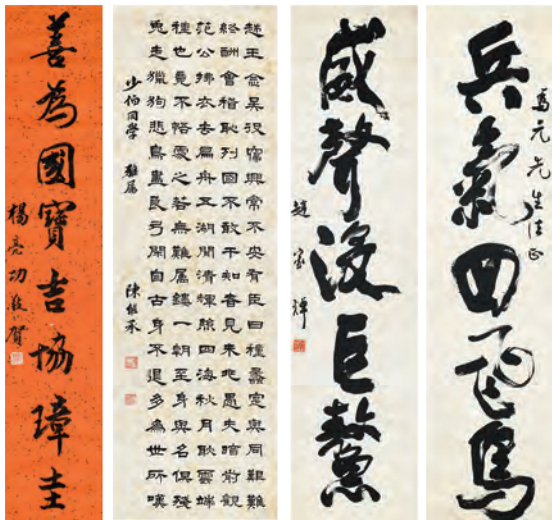 兵氣回飛鳥
元先生法正
威聲沒巨鰲
趙家驊
越王念吳寤興常不央有臣曰種蠡定與同艱難
終酬會稽恥列國不敢干知音見未兆愚夫暗前觀
范公拂衣去扁舟五湖間清輝照四海秋月耿雲端
種也竟不悟愛之若無難屬鏤一朝至身與名俱殘
兔走獵狗悲鳥盡良弓閑自古身不退多為世所嘆
少伯同學 雅屬 陳繼承
善為國寶吉協璋圭
楊亮功敬賀